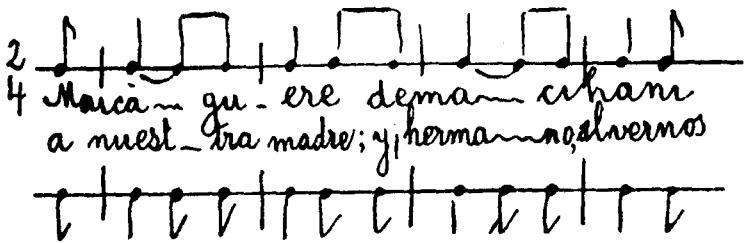 2
4
Maicà gu-ere dema cihani
a nuest-tra madre; y, hermano, al vernos